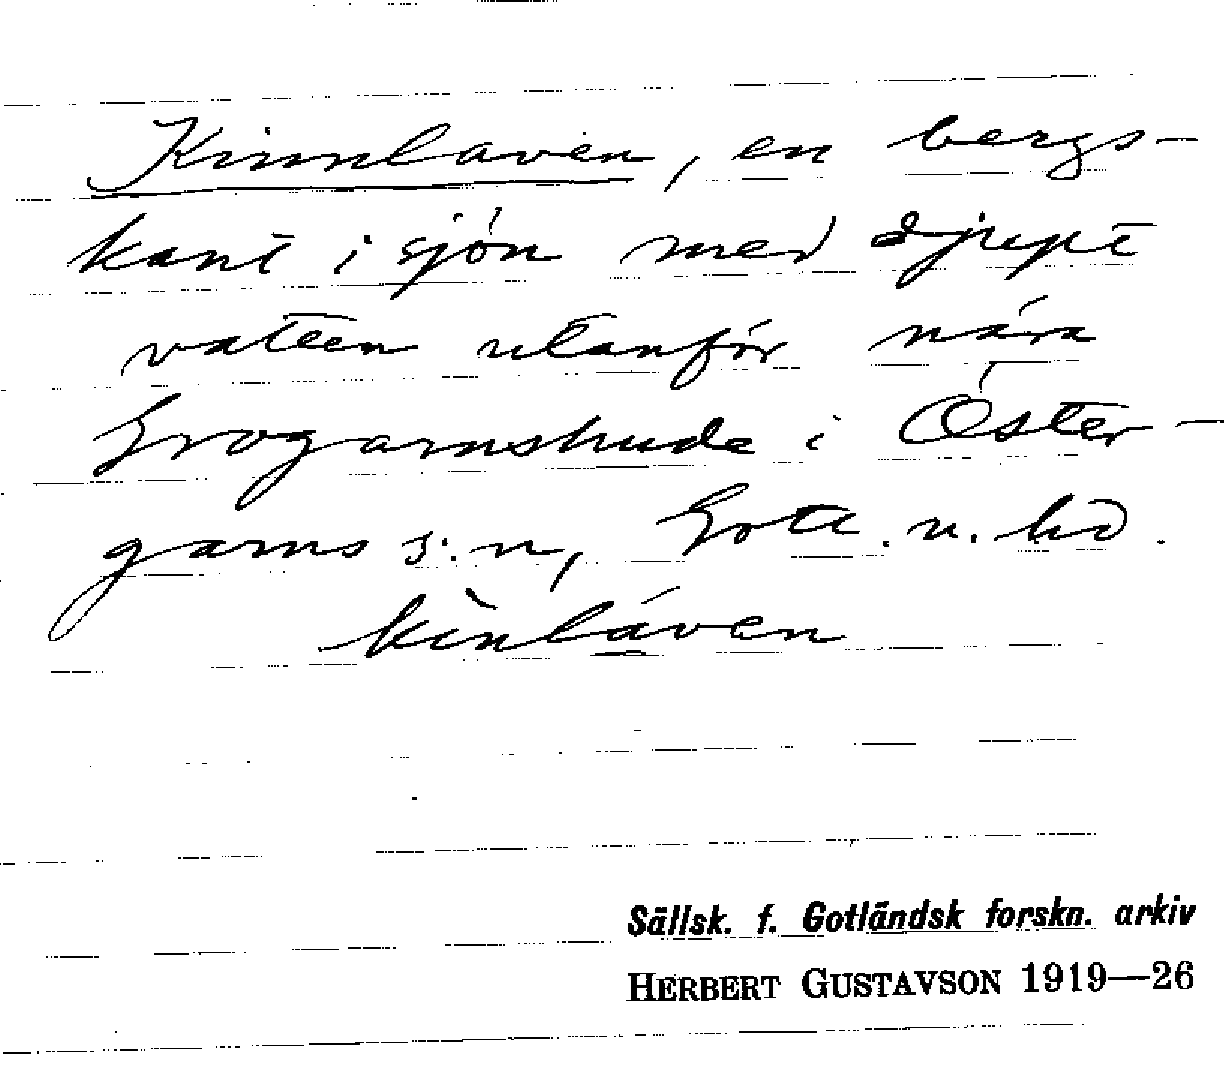 Kinnlaven, en bergs-
kant i sjön med djupt
vatten utanför nära
Grogarnshude i Öster-
garns s:n, Gotl. n. hd.
kìnláven
Sällsk. f. Gotländsk forskn. arkiv
HERBERT GUSTAVSON 1919—26